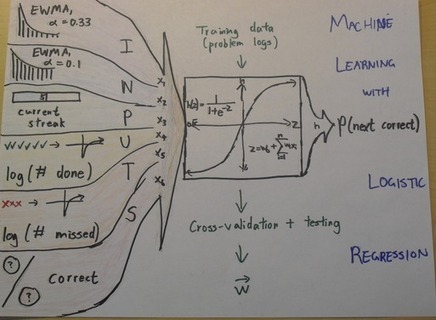 EWMA,
α = 0.33
EWMA,
α = 0.1
51
current
streak
✓✓✓✓✓✓ →
log (# done)
xxx →
log (# missed)
?
?
correct
I
N
P
U
T
S
x₁
x₂
x₃
x₄
x₅
x₆
Training data
(problem logs)
h(z) = 1/(1+e^-z)
z
h
P(next correct)
Cross-validation + testing
w
MACHINE
LEARNING
WITH
LOGISTIC
REGRESSION